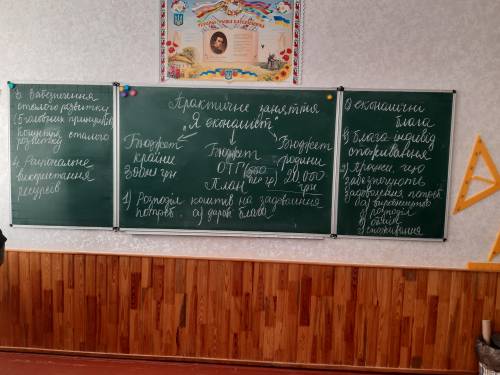 3. Забезпечення
сталого розвитку
(5 головних принципів
концепція сталого
розвитку)
4. Раціональне
використання
ресурсів
Практичне заняття
"Я економіст"
Бюджет
країни
Бюджет
ОТГ
План
Бюджет
родини
20 000
грн
1) Розподіл коштів на задоволення
потреб. а) дарові блага
економічні
блага
блага індивід
споживання
2) Процес, що
забезпечують
задоволення потреб
а) виробництво
б) розподіл
в) обмін
г) споживання